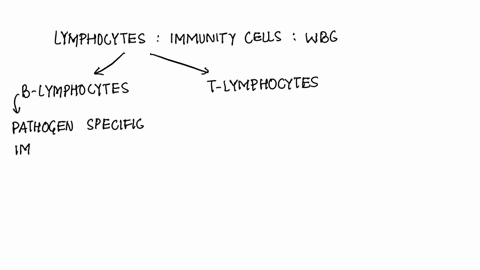 LYMPHOCYTES : IMMUNITY CELLS : WBC
B-LYMPHOCYTES
T-LYMPHOCYTES
PATHOGEN SPECIFIC
IM